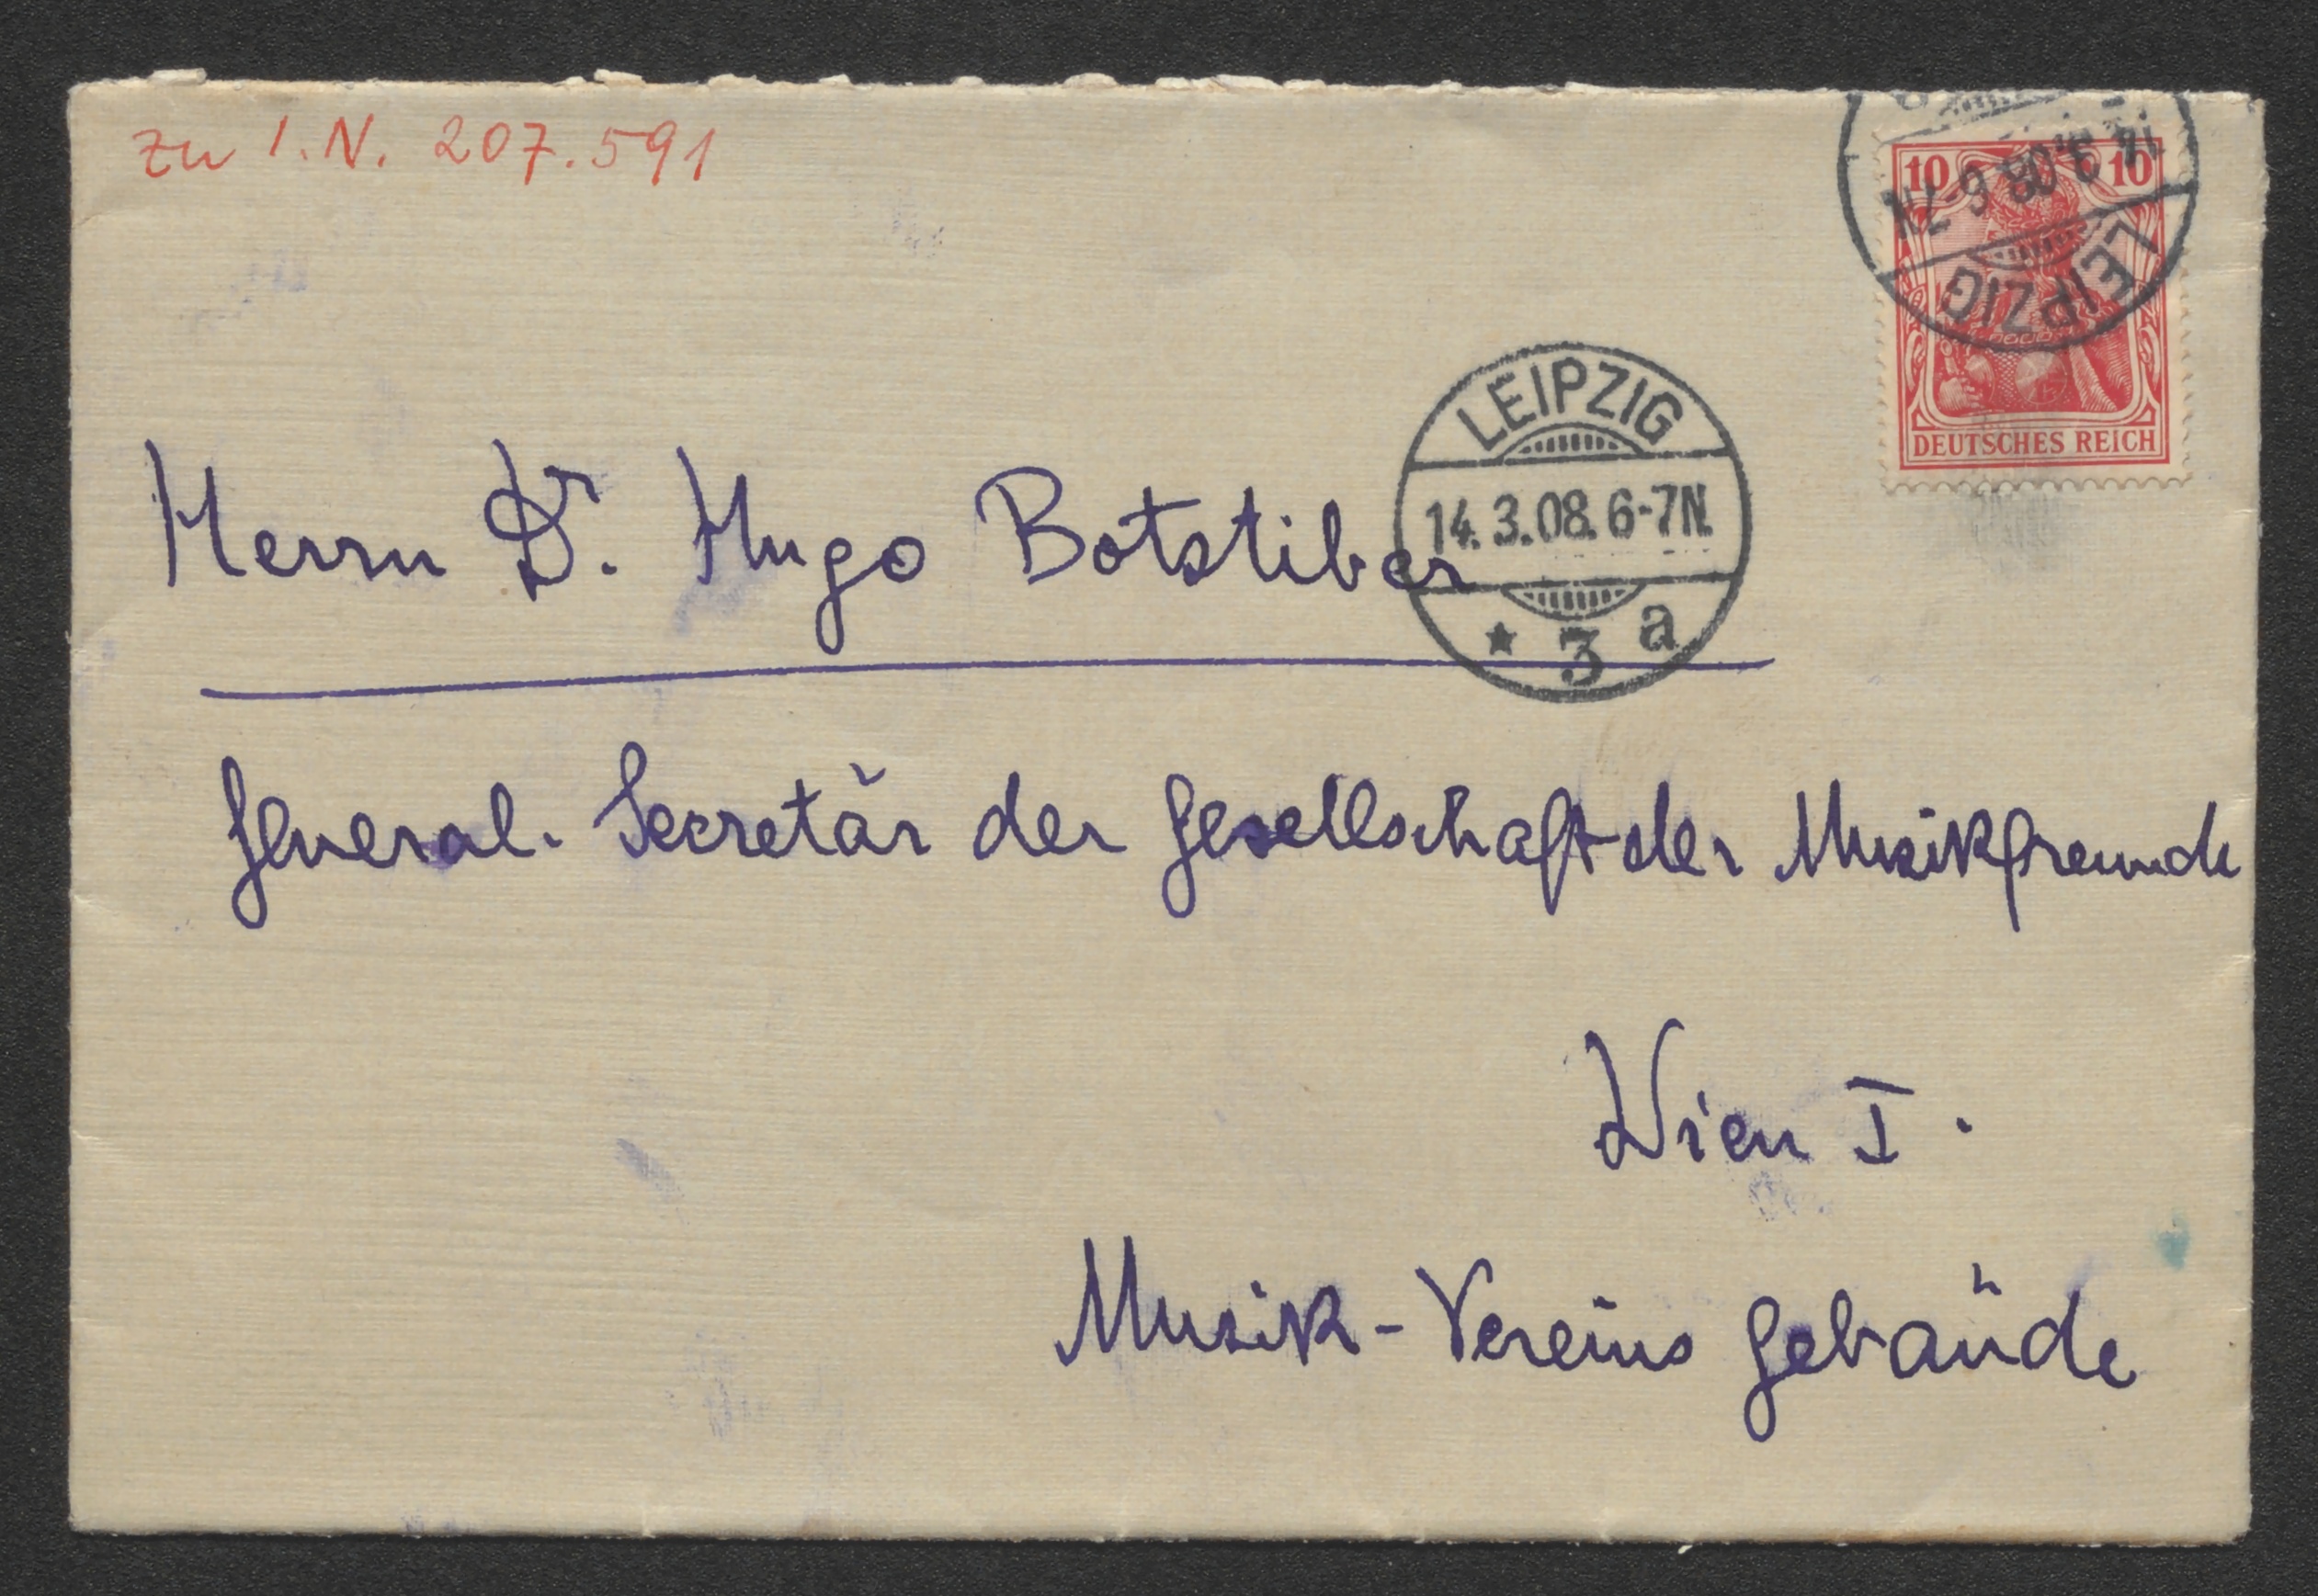 zu I.N. 207.591
10 10
14.3.08.6-7N.
LEIPZIG
DEUTSCHES REICH
LEIPZIG
14.3.08.6-7N.
* 3 a
Herrn Dr. Hugo Botstiber
General-Secretär der Gesellschaft der Musikfreunde
Wien I.
Musik-Vereins Gebäude